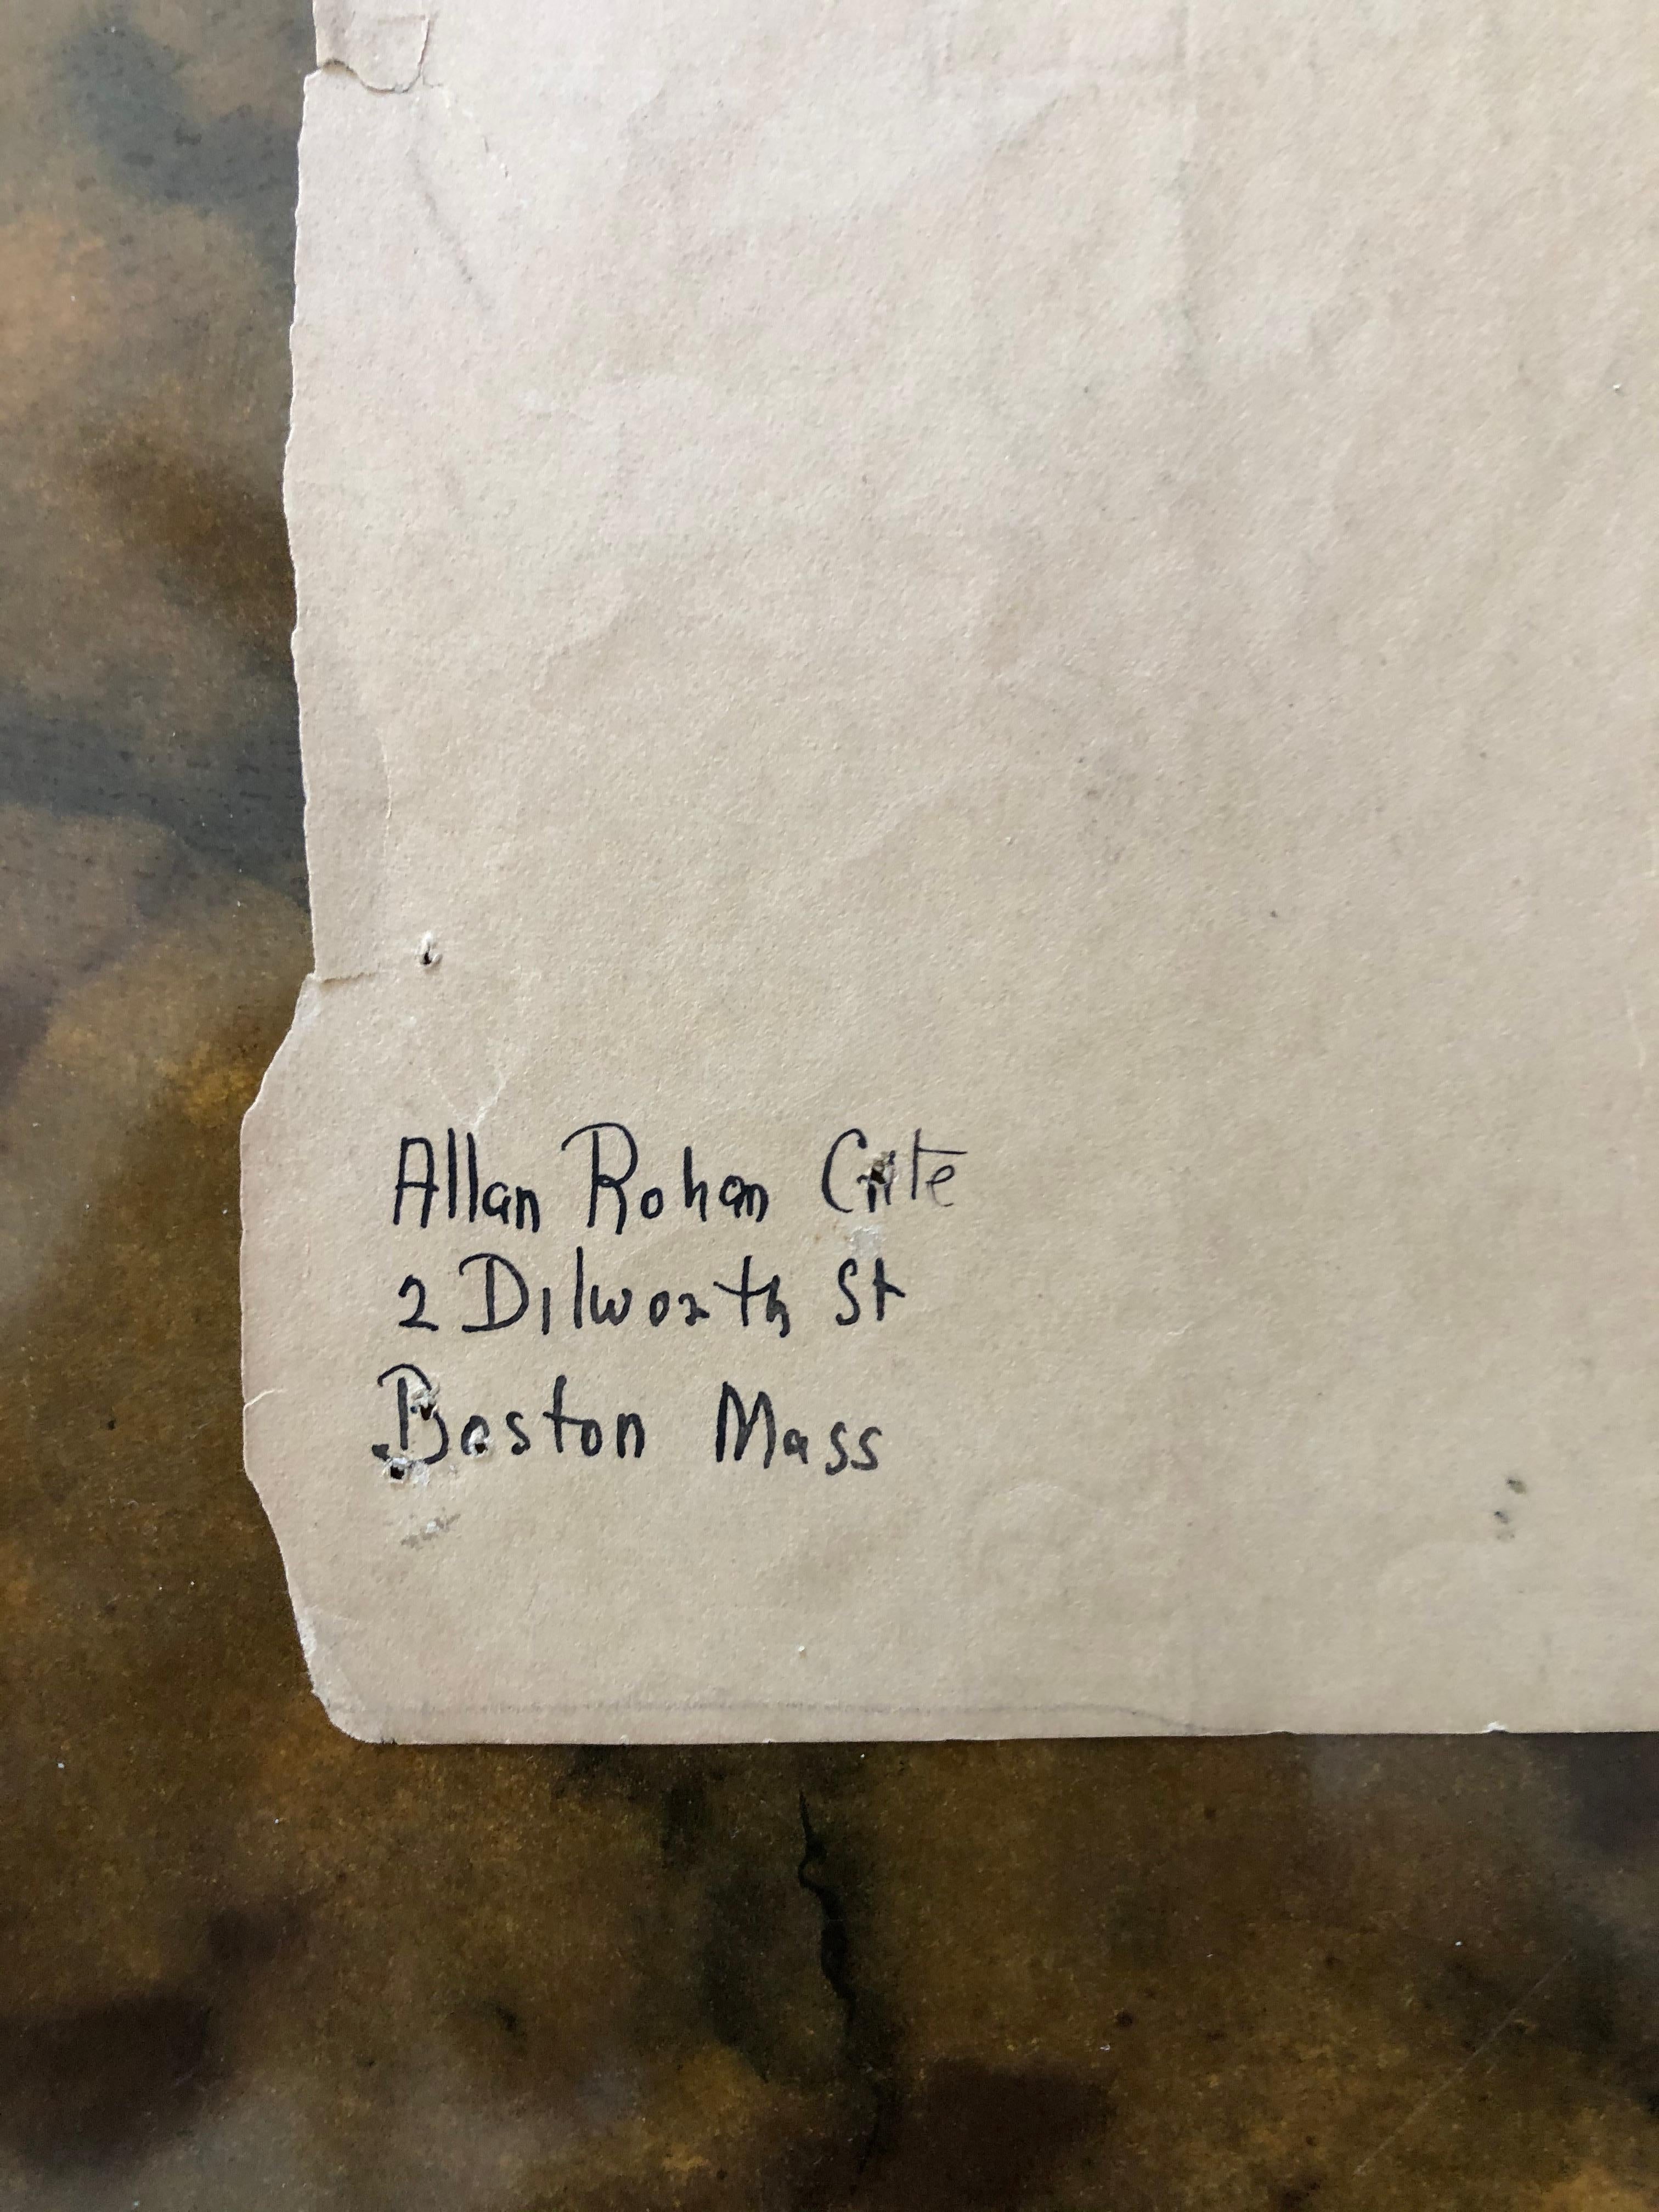 Allan Rohan Crite
2 Dilworth St
Boston Mass